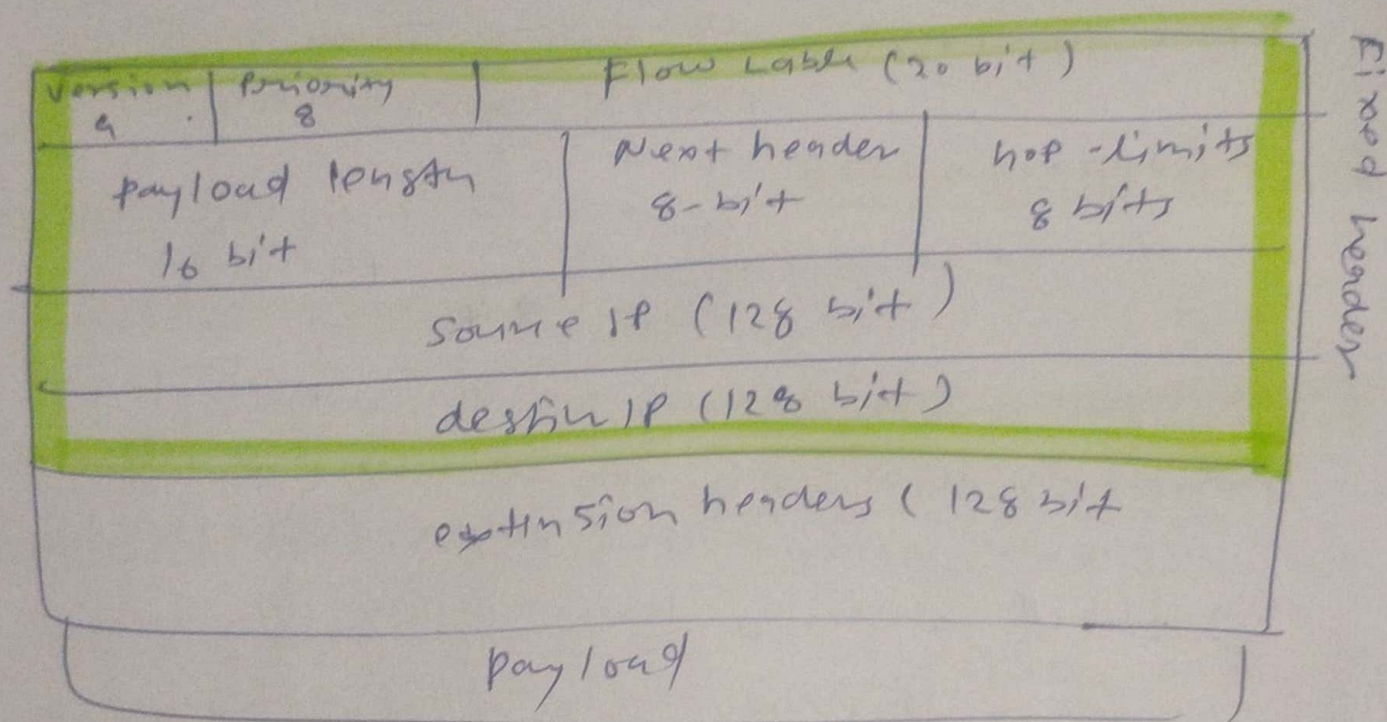 Version Priority Flow Lable (20 bit)
4 8
payload length Next header hop-limits
16 bit 8-bit 8 bits
Source IP (128 bit)
destin IP (128 bit)
extinsion headers (128 bit
payload
Fixed header